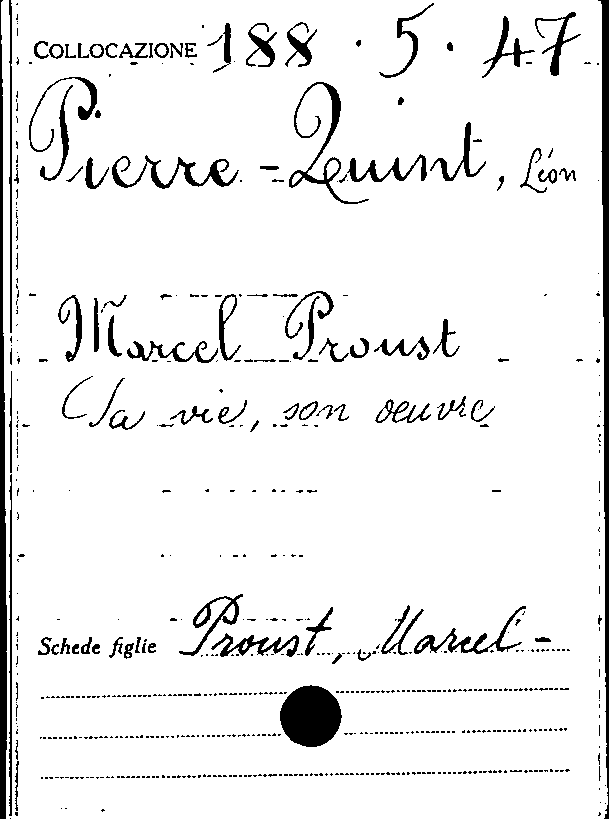 COLLOCAZIONE 188.5.47
Pierre-Quint, Léon
Marcel Proust
Sa vie, son oeuvre
Schede figlie Proust, Marcel -